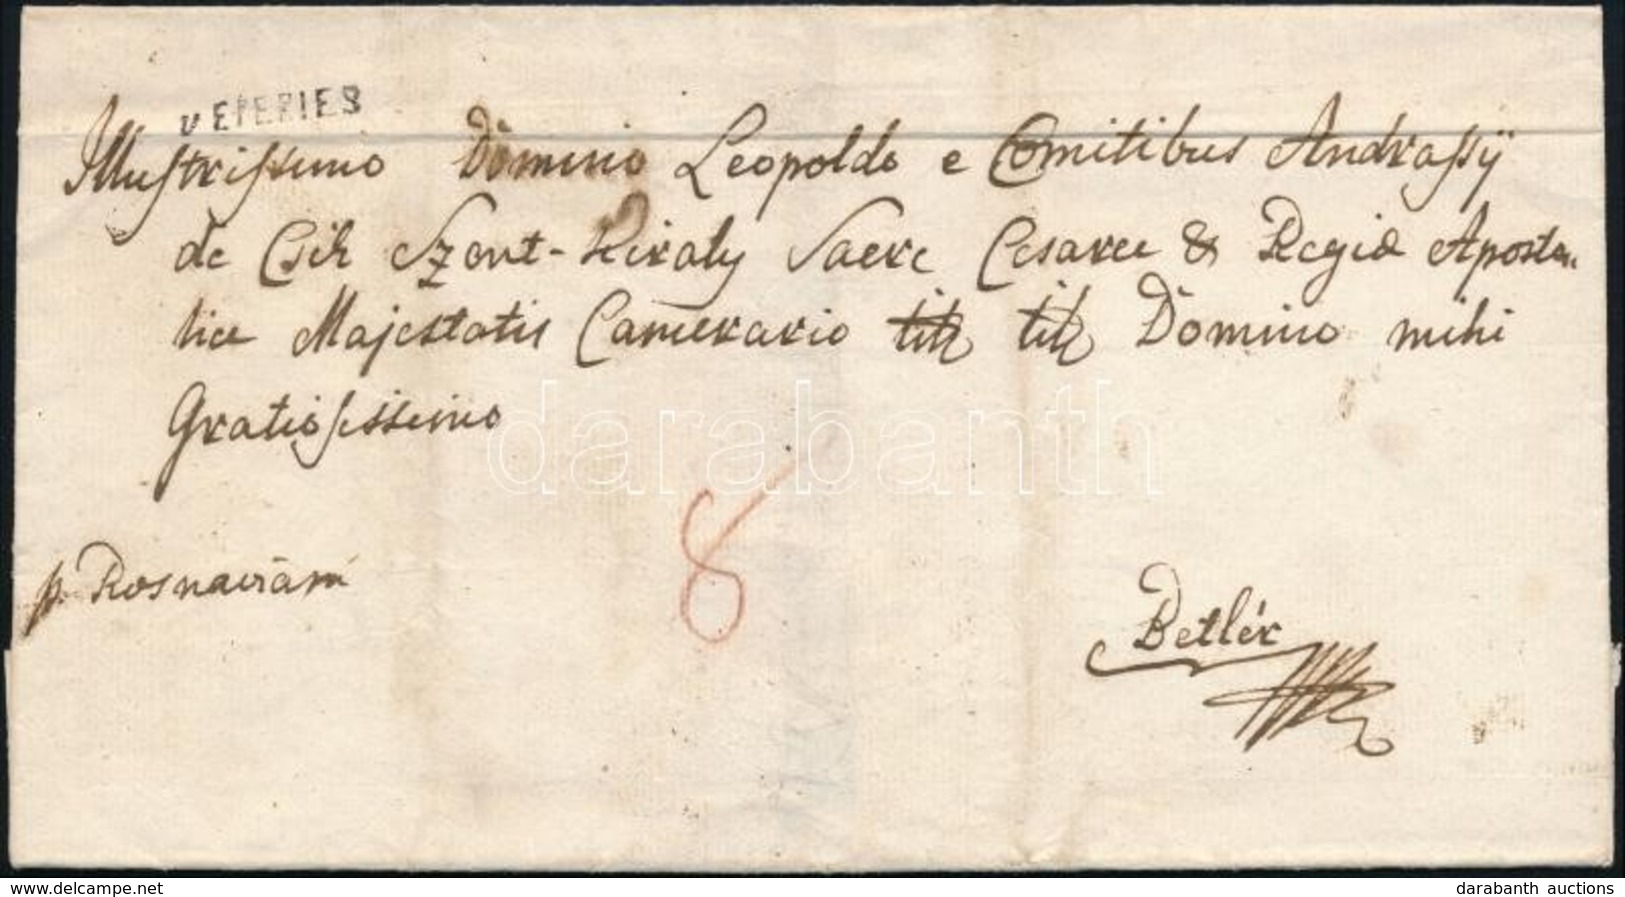 v EPERIES
Illustrissimo Domino Leopoldo e Comitibus Andrassÿ
de Csik Szent-Kiraly Sacre Cesaree & Regio Aposto-
lice Majestatis Camerario titt titt Domino mihi
Gratiosissimo
darabanth
8
p. Rosnaviam
Betlér
https://www.delcampe.net/en_GB/collectibles
darabanth auctions